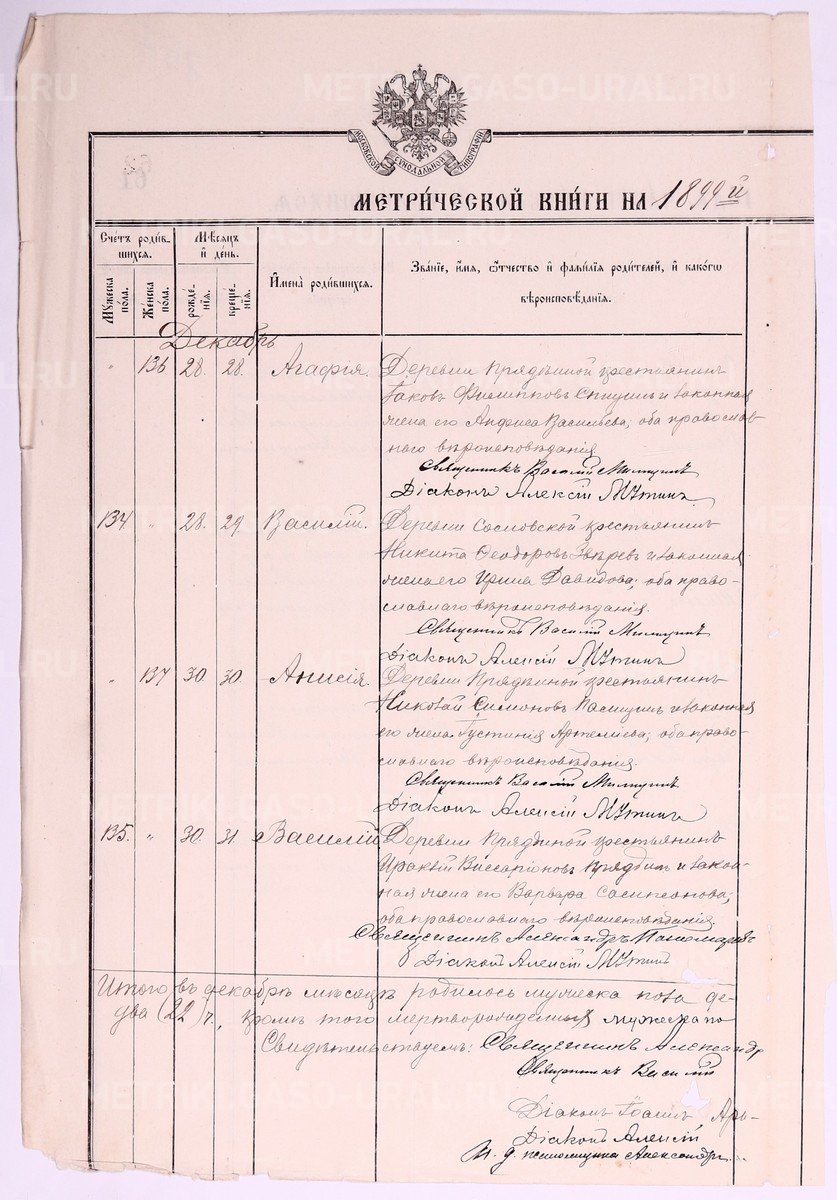 METRIKI.GASO-URAL.RU
МОСКОВСКОЙ СѴНОДАЛЬНОЙ ТИПОГРАФІИ
61
МЕТРИ́ЧЕСКОЙ КНИ́ГИ НА 1899 й
Счётъ роди́вшихся.
Мѣ́сяцъ и де́нь.
Имена̀ роди́вшихся.
Зва́нїе, и́мя, ѻ҆́тчество и фамѝлїя роди́телей, и какогѡ вѣроисповѣ́данїя.
Му́жеска по́ла.
Же́нска по́ла.
рожде́нїя.
креще́нїя.
Декабрь
" 136 28. 28. Агафія. Деревни Прядѣиной крестьянинъ
Іаковъ Филипповъ и законная
жена его Анфиса Васильева; оба православ-
наго вѣроисповѣданія
Священникъ Василій Милицинъ
Діаконъ Алексій Мутинъ
134 " 28. 29. Василій. Деревни Сосновской крестьянинъ
Никита Ѳеодоровъ Звѣревъ и законная
жена его Ирина Давидова; оба право-
славнаго вѣроисповѣданія.
Священникъ Василій Милицинъ
Діаконъ Алексій Мутинъ
" 137 30. 30. Анисія. Деревни Прядѣиной крестьянинъ
Николай Симоновъ и законная
его жена Іустинія Артемиева; оба право-
славнаго вѣроисповѣданія.
Священникъ Василій Милицинъ
Діаконъ Алексій Мутинъ
135. " 30. 31. Василій Деревни Прядѣиной крестьянинъ
Ираклій Виссаріоновъ и закон-
ная жена его Варвара;
оба православнаго вѣроисповѣданія.
Священникъ Александръ Пономаревъ
Діаконъ Алексій Мутинъ
Итого въ декабрѣ мѣсяцѣ родилось мужеска пола де-
два (22) ч., кромѣ того мертворожденных мужеска по
Свидѣтельствуемъ: Священникъ Александр
Священникъ Василій
Діаконъ
Діаконъ Алексій
И. д. псаломщика Александръ